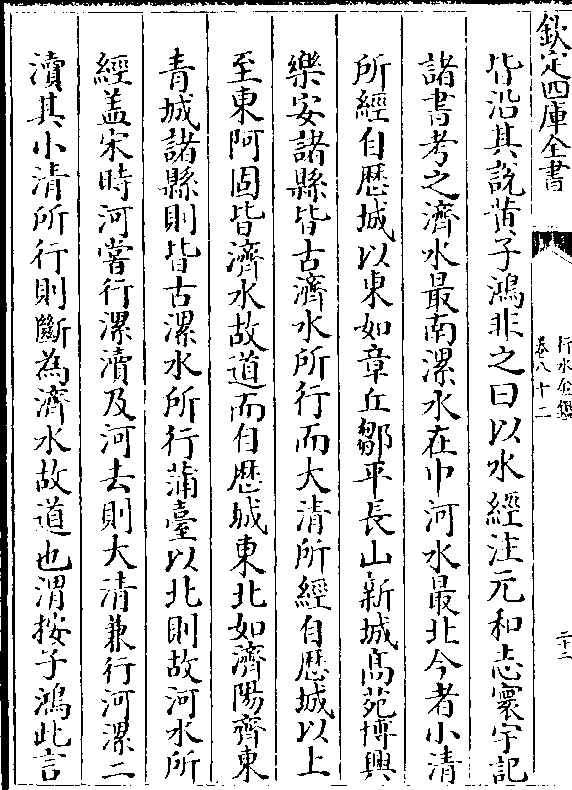 欽定四庫全書
行水金鑑
卷八十二
二十二
皆沿其說黄子鴻非之曰以水經注元和志寰宇記
諸書考之濟水最南漯水在中河水最北今者小清
所經自歴城以東如章丘鄒平長山新城髙苑博興
樂安諸縣皆古濟水所行而大清所經自歴城以上
至東阿固皆濟水故道而自歴城東北如濟陽齊東
青城諸縣則皆古漯水所行蒲臺以北則故河水所
經盖宋時河嘗行漯瀆及河去則大清兼行河漯二
瀆其小清所行則斷為濟水故道也渭按子鴻此言